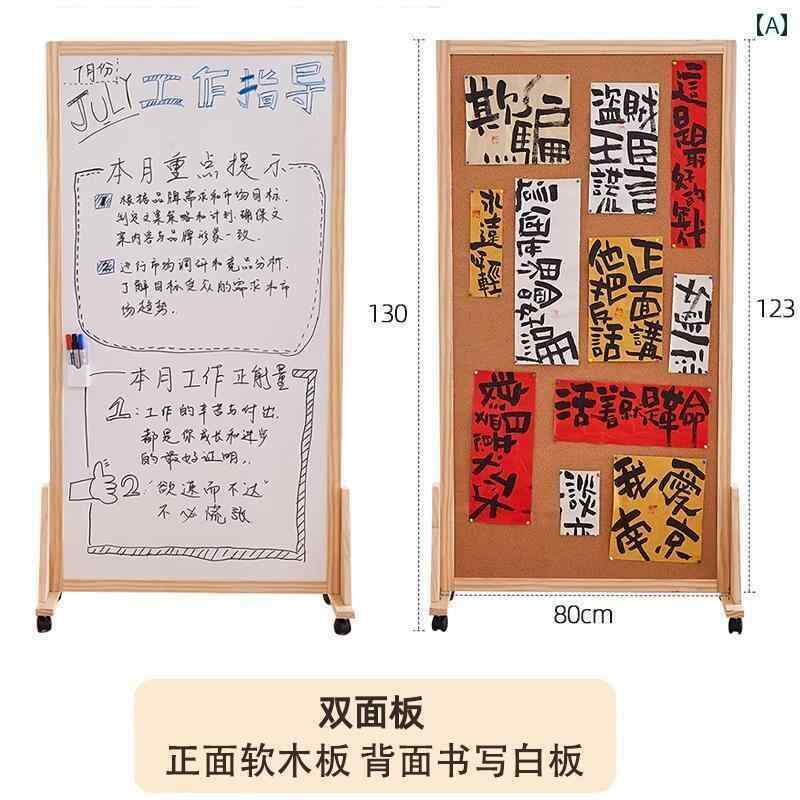 【A】
7月份:
JULY 工作指导
本月重点提示
1 根据品牌需求和市场目标,
制定文案策略和计划,确保文
案内容与品牌形象一致.
2 进行市场调研和竞品分析,
了解目标受众的需求和市
场趋势.
本月工作正能量
1:工作的辛苦与付出
都是你成长和进步
的最好证明.
2"欲速而不达"
不必慌张
欺騙
盜賊
王臣
謊言
這是最好的年代
永遠年輕
正面講
他把
話
活著就是革命
談
我愛
南京
130
123
80cm
双面板
正面软木板 背面书写白板